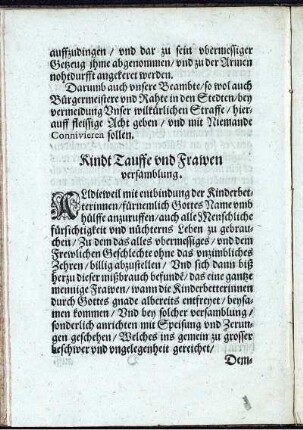 auffzudingen / vnd dar zu sein vbermessiger
Getzeug ihme abgenommen / vnd zu der Armen
nohtdurfft angekeret werden.
Darumb auch vnsere Beambte / so wol auch
Bürgermeistere vnd Rahte in den Stedten / bey
vermeidung Vnser wilkürlichen Straffe / hier-
auff fleissige Acht geben / vnd mit Niemande
Connivieren sollen.
Kindt Tauffe vnd Frawen
versamblung.
ALldieweil mit entbindung der Kinderbet-
terinnen / fürnemlich Gottes Name vmb
hülffe anzuruffen / auch alle Menschliche
fürsichtigkeit vnd nüchterns Leben zu gebrau-
chen / Zu dem das alles vbermessiges / vnd dem
Frewlichen Geschlechte ohne das vnzimblichs
Zehren / billig abzustellen / Vnd sich dann biß
herzu dieser mißbrauch befundē / das eine gantze
mennige Frawen / wann die Kinderbetterinnen
durch Gottes gnade albereits entfreyet / beysa-
men kommen / Vnd bey solcher versamblung /
sonderlich anrichten mit Speisung vnd Zerun-
gen geschehen / Welches ins gemein zu grosser
beschwer vnd vngelegenheit gereichet /
Dem-